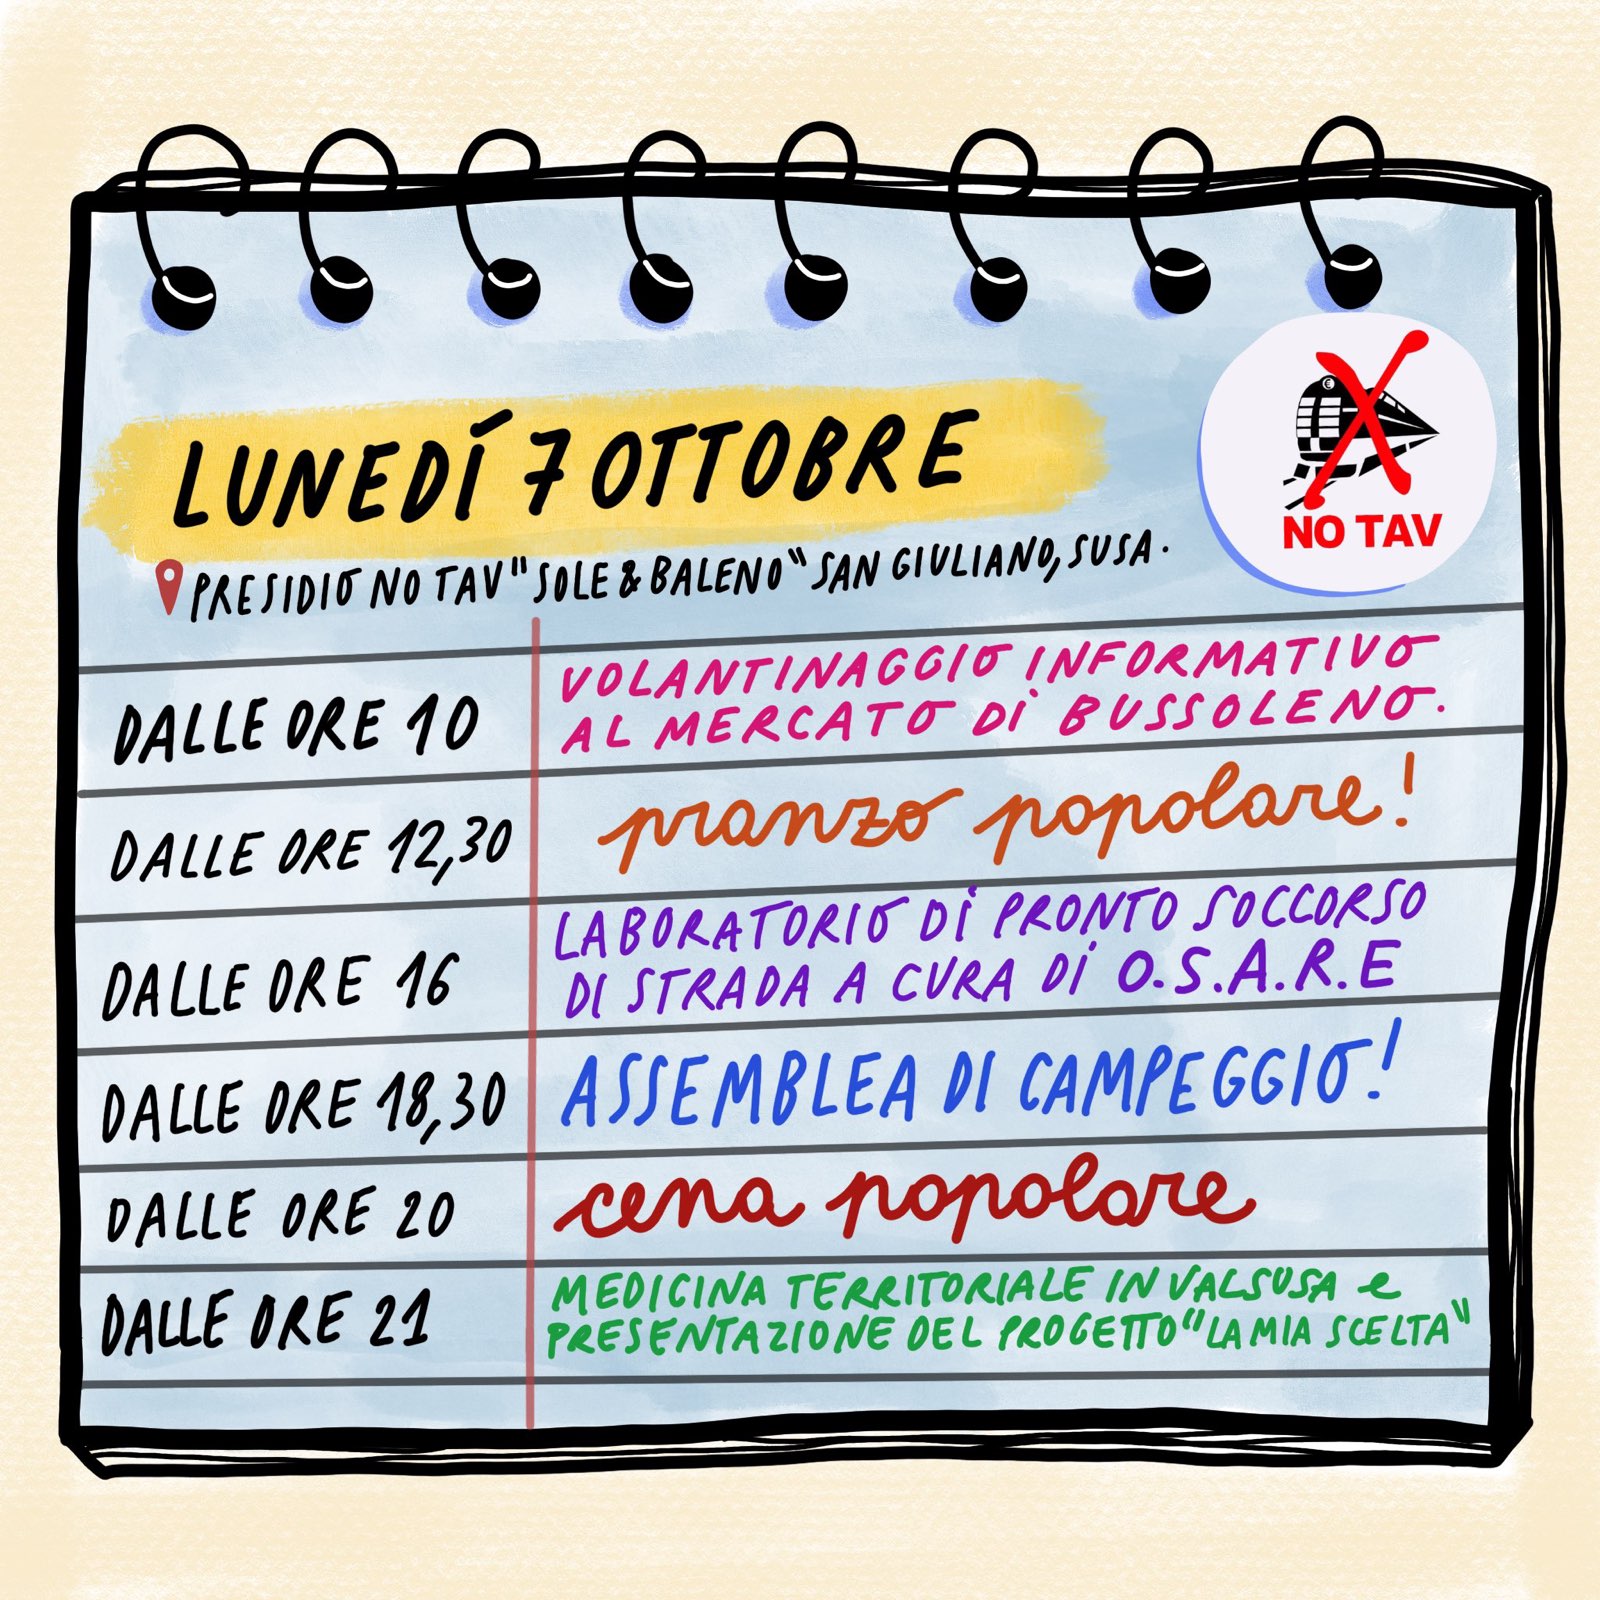 LUNEDÍ 7 OTTOBRE
NO TAV
PRESIDIO NO TAV "SOLE & BALENO" SAN GIULIANO, SUSA.
DALLE ORE 10
VOLANTINAGGIO INFORMATIVO
AL MERCATO DI BUSSOLENO.
DALLE ORE 12,30
pranzo popolare!
DALLE ORE 16
LABORATORIO DI PRONTO SOCCORSO
DI STRADA A CURA DI O.S.A.R.E
DALLE ORE 18,30
ASSEMBLEA DI CAMPEGGIO!
DALLE ORE 20
cena popolare
DALLE ORE 21
MEDICINA TERRITORIALE IN VALSUSA e
PRESENTAZIONE DEL PROGETTO "LA MIA SCELTA"